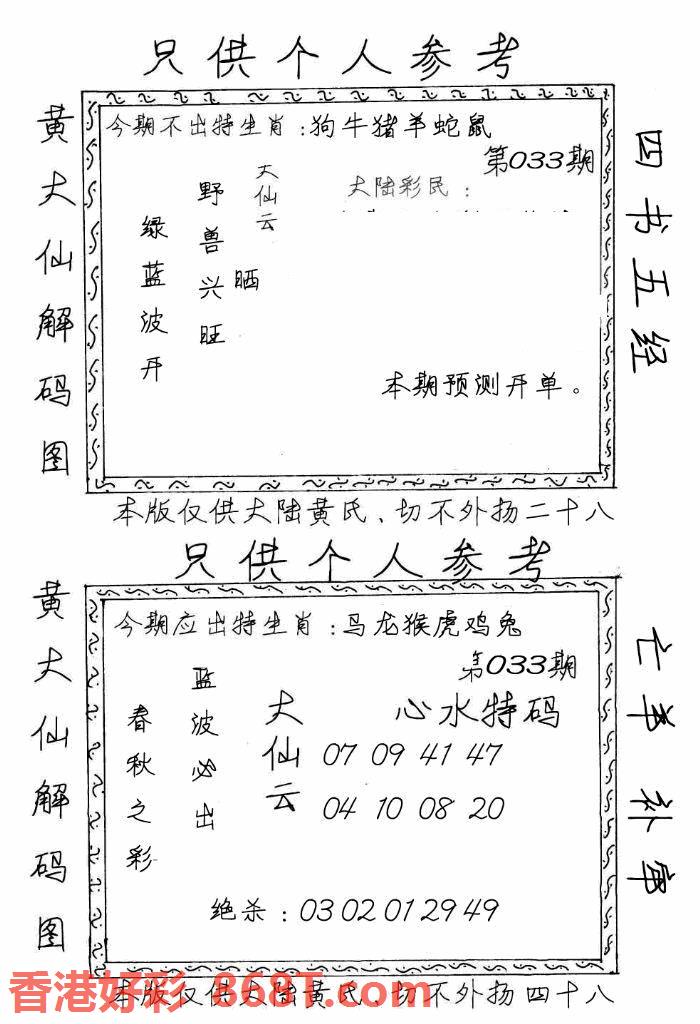 只供个人参考
黄大仙解码图
今期不出特生肖：狗牛猪羊蛇鼠
第033期
大仙云
晒
大陆彩民：
野兽兴旺
绿蓝波开
本期预测开单。
四书五经
本版仅供大陆黄氏、切不外扬二十八
只供个人参考
黄大仙解码图
今期应出特生肖：马龙猴虎鸡兔
第033期
蓝波必出
春秋之彩
大仙云
心水特码
07 09 41 47
04 10 08 20
绝杀：03 02 01 29 49
亡羊补牢
香港好彩 868T.com
本版仅供大陆黄氏、切不外扬四十八